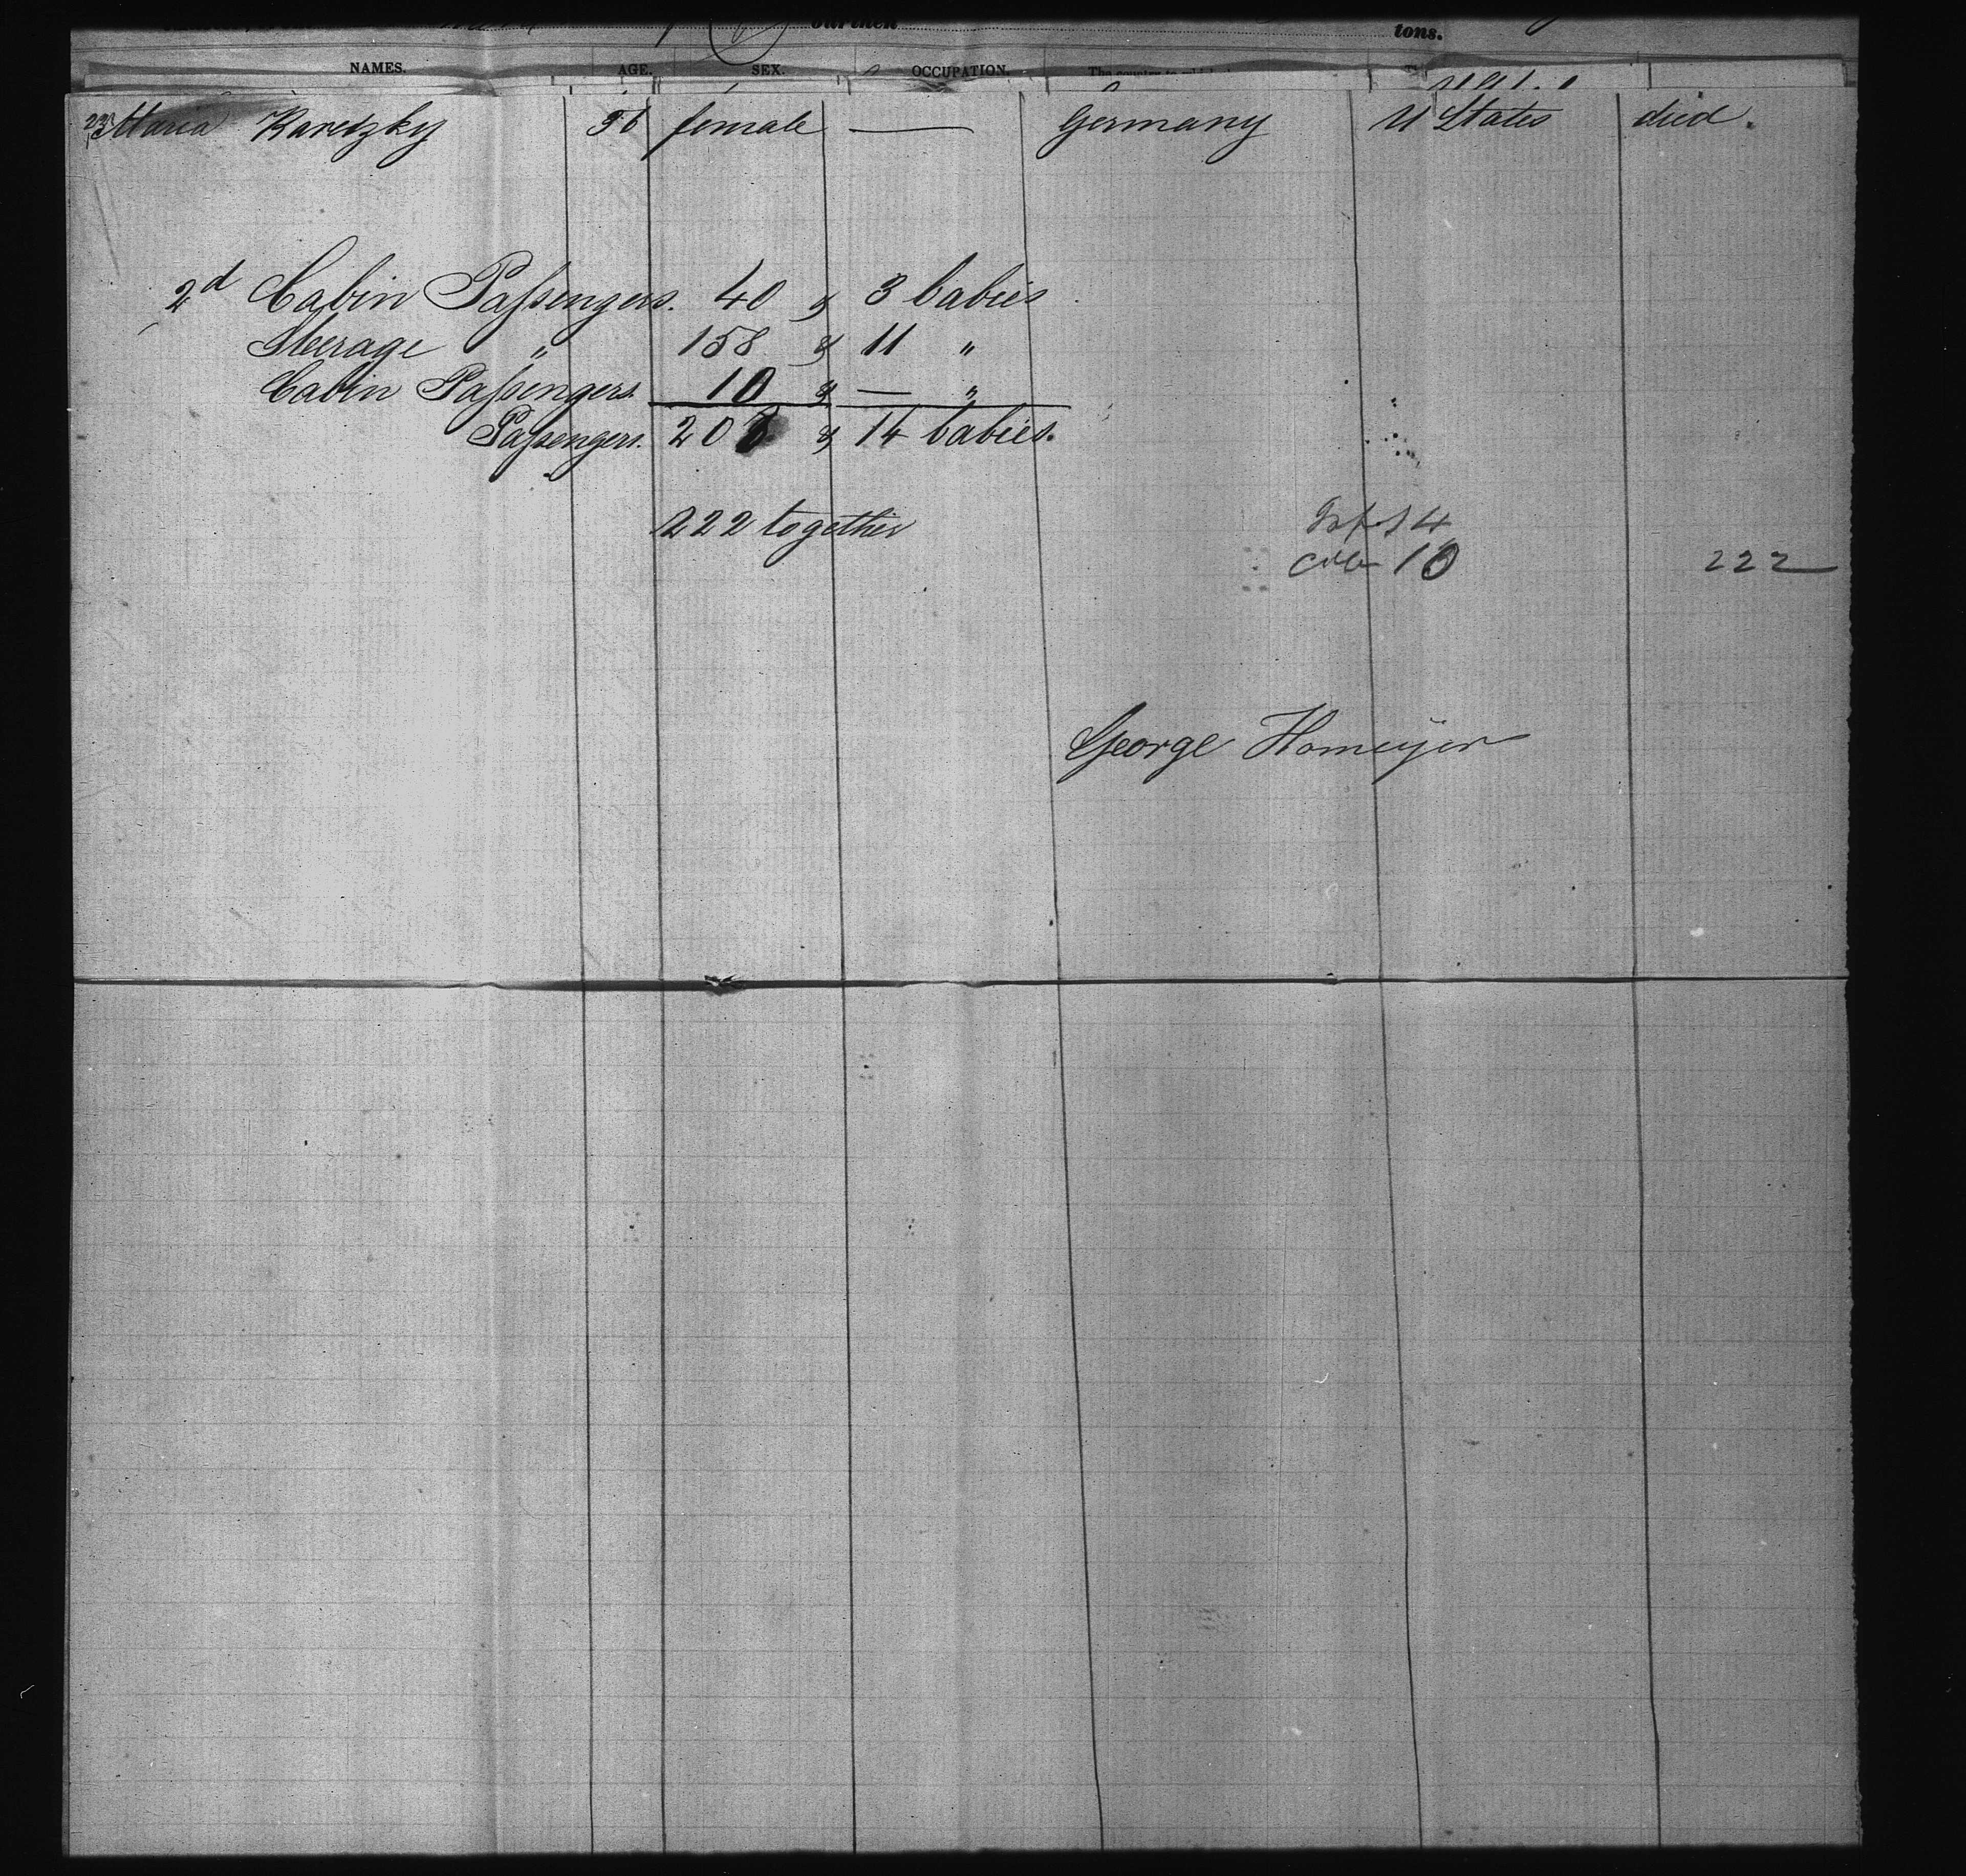 burthen tons.
NAMES. AGE. SEX. OCCUPATION. The country to which
223 Maria Karetzky 56 female — Germany U States died.
2d Cabin Passengers. 40 & 3 babies
Steerage " 158 & 11 "
Cabin Passengers 10 & — "
Passengers. 208 & 14 babies.
222 together
Inf 14
cab 10 222
George Homeyer